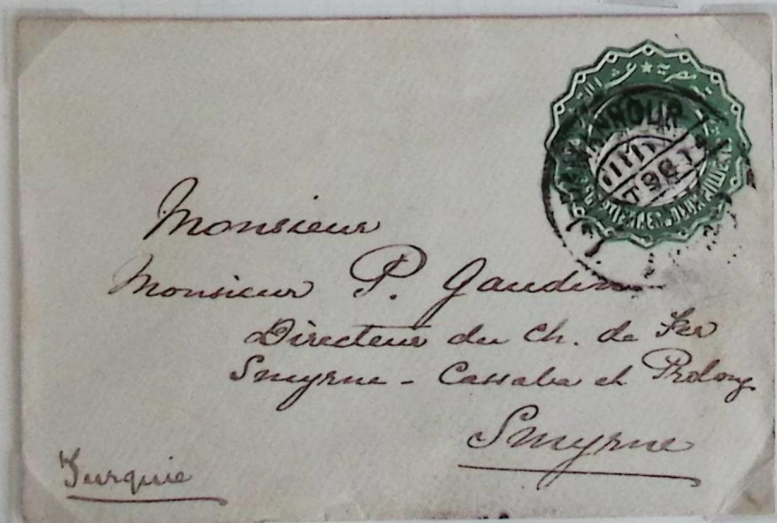 Monsieur
Monsieur P. Gaudin
Directeur du Ch. de Fer
Smyrne - Cassaba et Prolong
Smyrne
Turquie